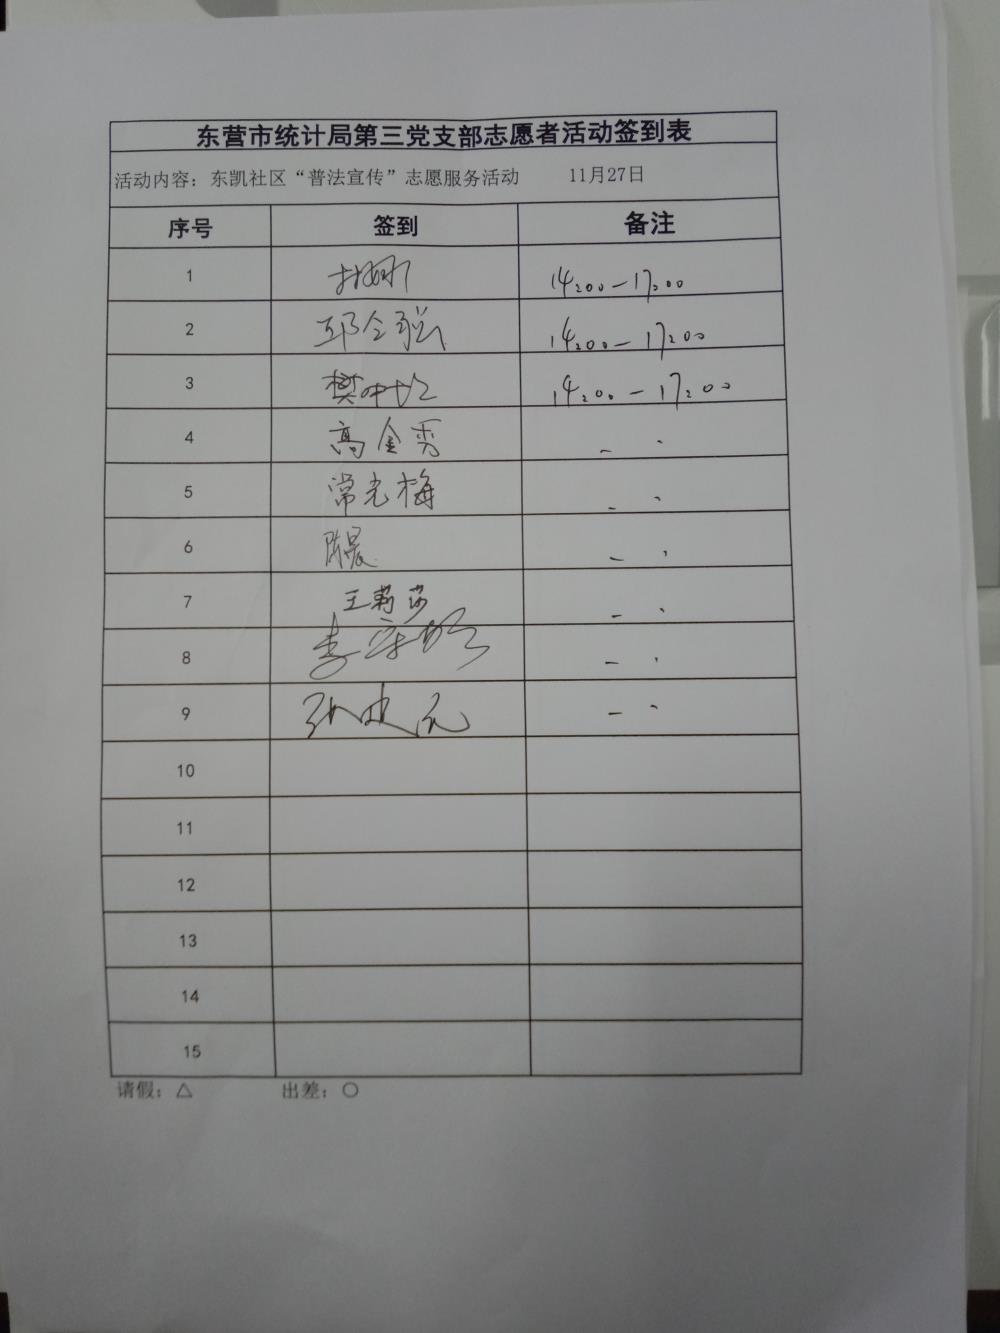 东营市统计局第三党支部志愿者活动签到表
活动内容：东凯社区“普法宣传”志愿服务活动 11月27日
序号 签到 备注
1 14:00-17:00
2 邱令强 14:00-17:00
3 樊 14:00-17:00
4 高金秀
5 常光梅
6 陈晨
7 王莉莎
8 李
9 张
10
11
12
13
14
15
请假：△ 出差：○